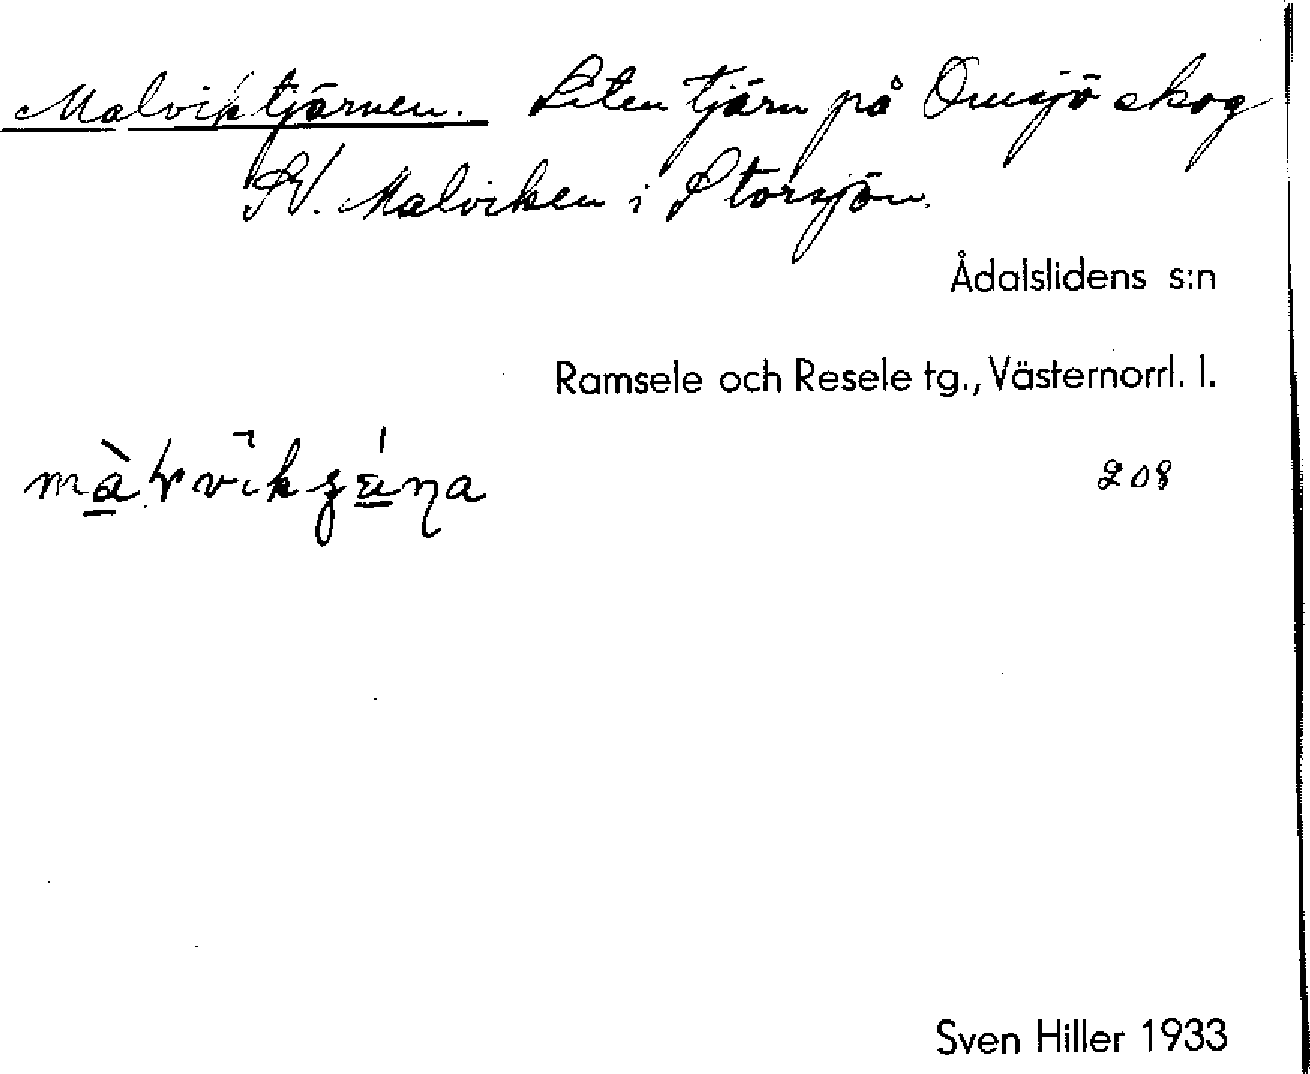 Malviktjärnen. Liten tjärn på Omsjö skog
SV. Malviken i Storsjön.
Ådalslidens s:n
Ramsele och Resele tg., Västernorrl. l.
208
Sven Hiller 1933